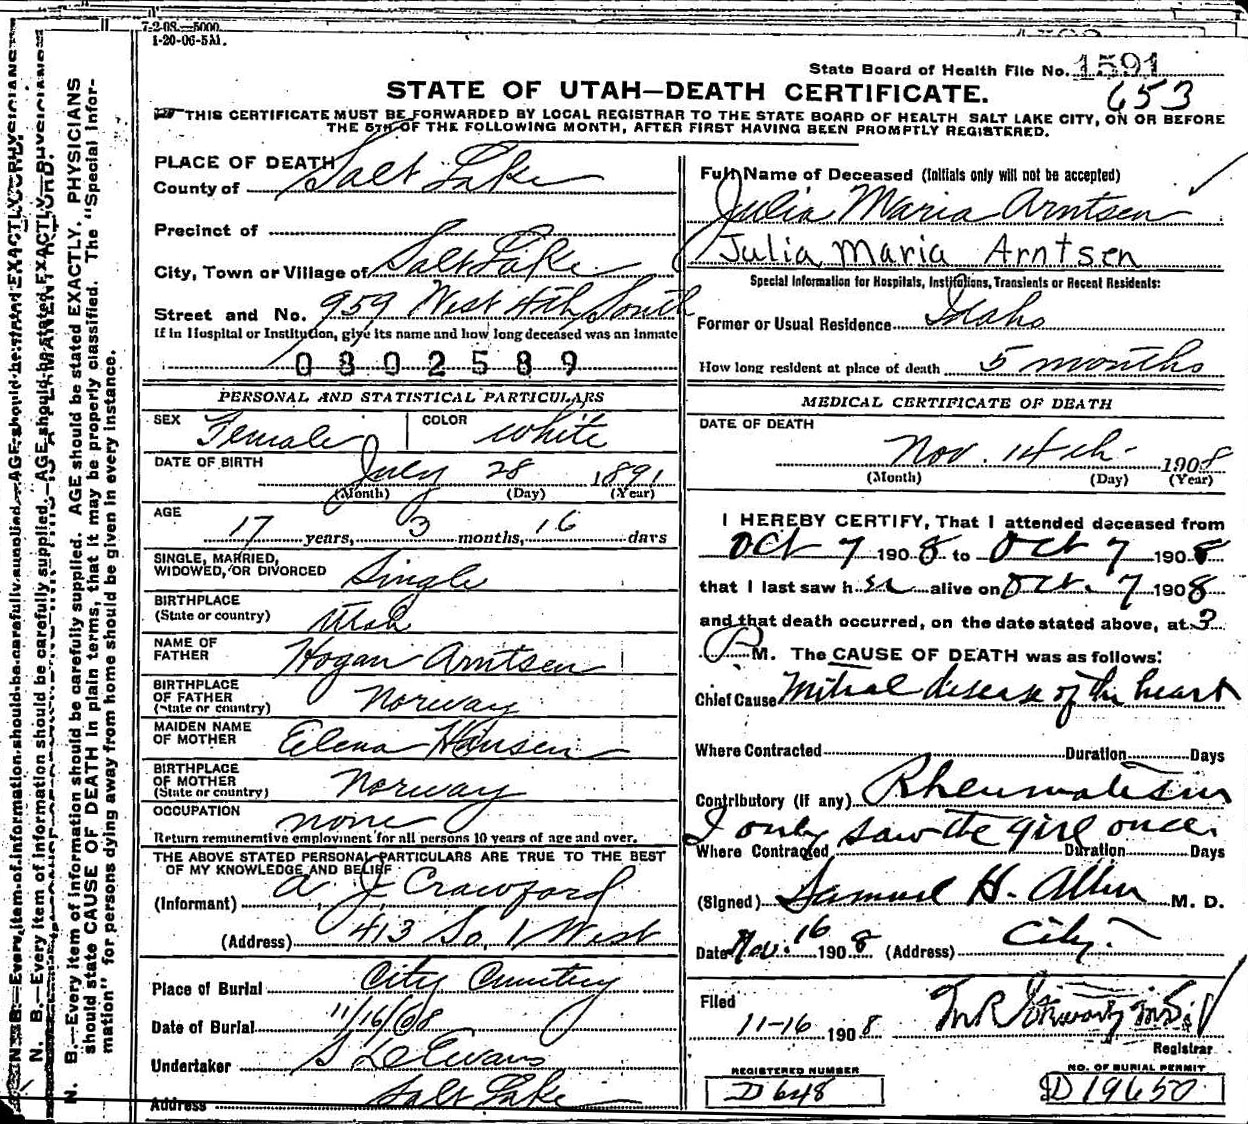 7-2-08.—5000.
1-20-06-5M.
State Board of Health File No. 1591
653
STATE OF UTAH—DEATH CERTIFICATE.
THIS CERTIFICATE MUST BE FORWARDED BY LOCAL REGISTRAR TO THE STATE BOARD OF HEALTH SALT LAKE CITY, ON OR BEFORE
THE 5TH OF THE FOLLOWING MONTH, AFTER FIRST HAVING BEEN PROMPTLY REGISTERED.
N. B.—Every item of information should be carefully supplied. AGE should be stated EXACTLY. PHYSICIANS
should state CAUSE OF DEATH in plain terms, that it may be properly classified. The "Special Infor-
mation" for persons dying away from home should be given in every instance.
PLACE OF DEATH
County of Salt Lake
Precinct of
City, Town or Village of Salt Lake
Street and No. 959 West 4th South
If in Hospital or Institution, give its name and how long deceased was an inmate
0802589
PERSONAL AND STATISTICAL PARTICULARS
SEX Female COLOR White
DATE OF BIRTH July 28 1891
(Month) (Day) (Year)
AGE
17 years, 3 months, 16 days
SINGLE, MARRIED,
WIDOWED, OR DIVORCED Single
BIRTHPLACE
(State or country) Utah
NAME OF
FATHER Hogan Arntsen
BIRTHPLACE
OF FATHER
(State or country) Norway
MAIDEN NAME
OF MOTHER Elena Hansen
BIRTHPLACE
OF MOTHER
(State or country) Norway
OCCUPATION none
Return remunerative employment for all persons 10 years of age and over.
THE ABOVE STATED PERSONAL PARTICULARS ARE TRUE TO THE BEST
OF MY KNOWLEDGE AND BELIEF
(Informant) A. J. Crawford
(Address) 413 So, 1 West
Place of Burial City Cemetery
Date of Burial 11/16/08
Undertaker S D Evans
Address Salt Lake
Full Name of Deceased (Initials only will not be accepted)
Julia Maria Arntsen
Julia Maria Arntsen
Special Information for Hospitals, Institutions, Transients or Recent Residents:
Former or Usual Residence Idaho
How long resident at place of death 5 months
MEDICAL CERTIFICATE OF DEATH
DATE OF DEATH
Nov. 14th 1908
(Month) (Day) (Year)
I HEREBY CERTIFY, That I attended deceased from
Oct 7 1908 to Oct 7 1908
that I last saw her alive on Oct. 7 1908
and that death occurred, on the date stated above, at 3
P M. The CAUSE OF DEATH was as follows:
Chief Cause Mitral disease of the heart
Where Contracted Duration Days
Contributory (if any) Rheumatism
I only saw the girl once.
Where Contracted Duration Days
(Signed) Samuel H. Allen M. D.
Date Nov. 16 1908 (Address) City.
Filed
11-16 1908
Registrar
REGISTERED NUMBER
D 648
NO. OF BURIAL PERMIT
D 19650